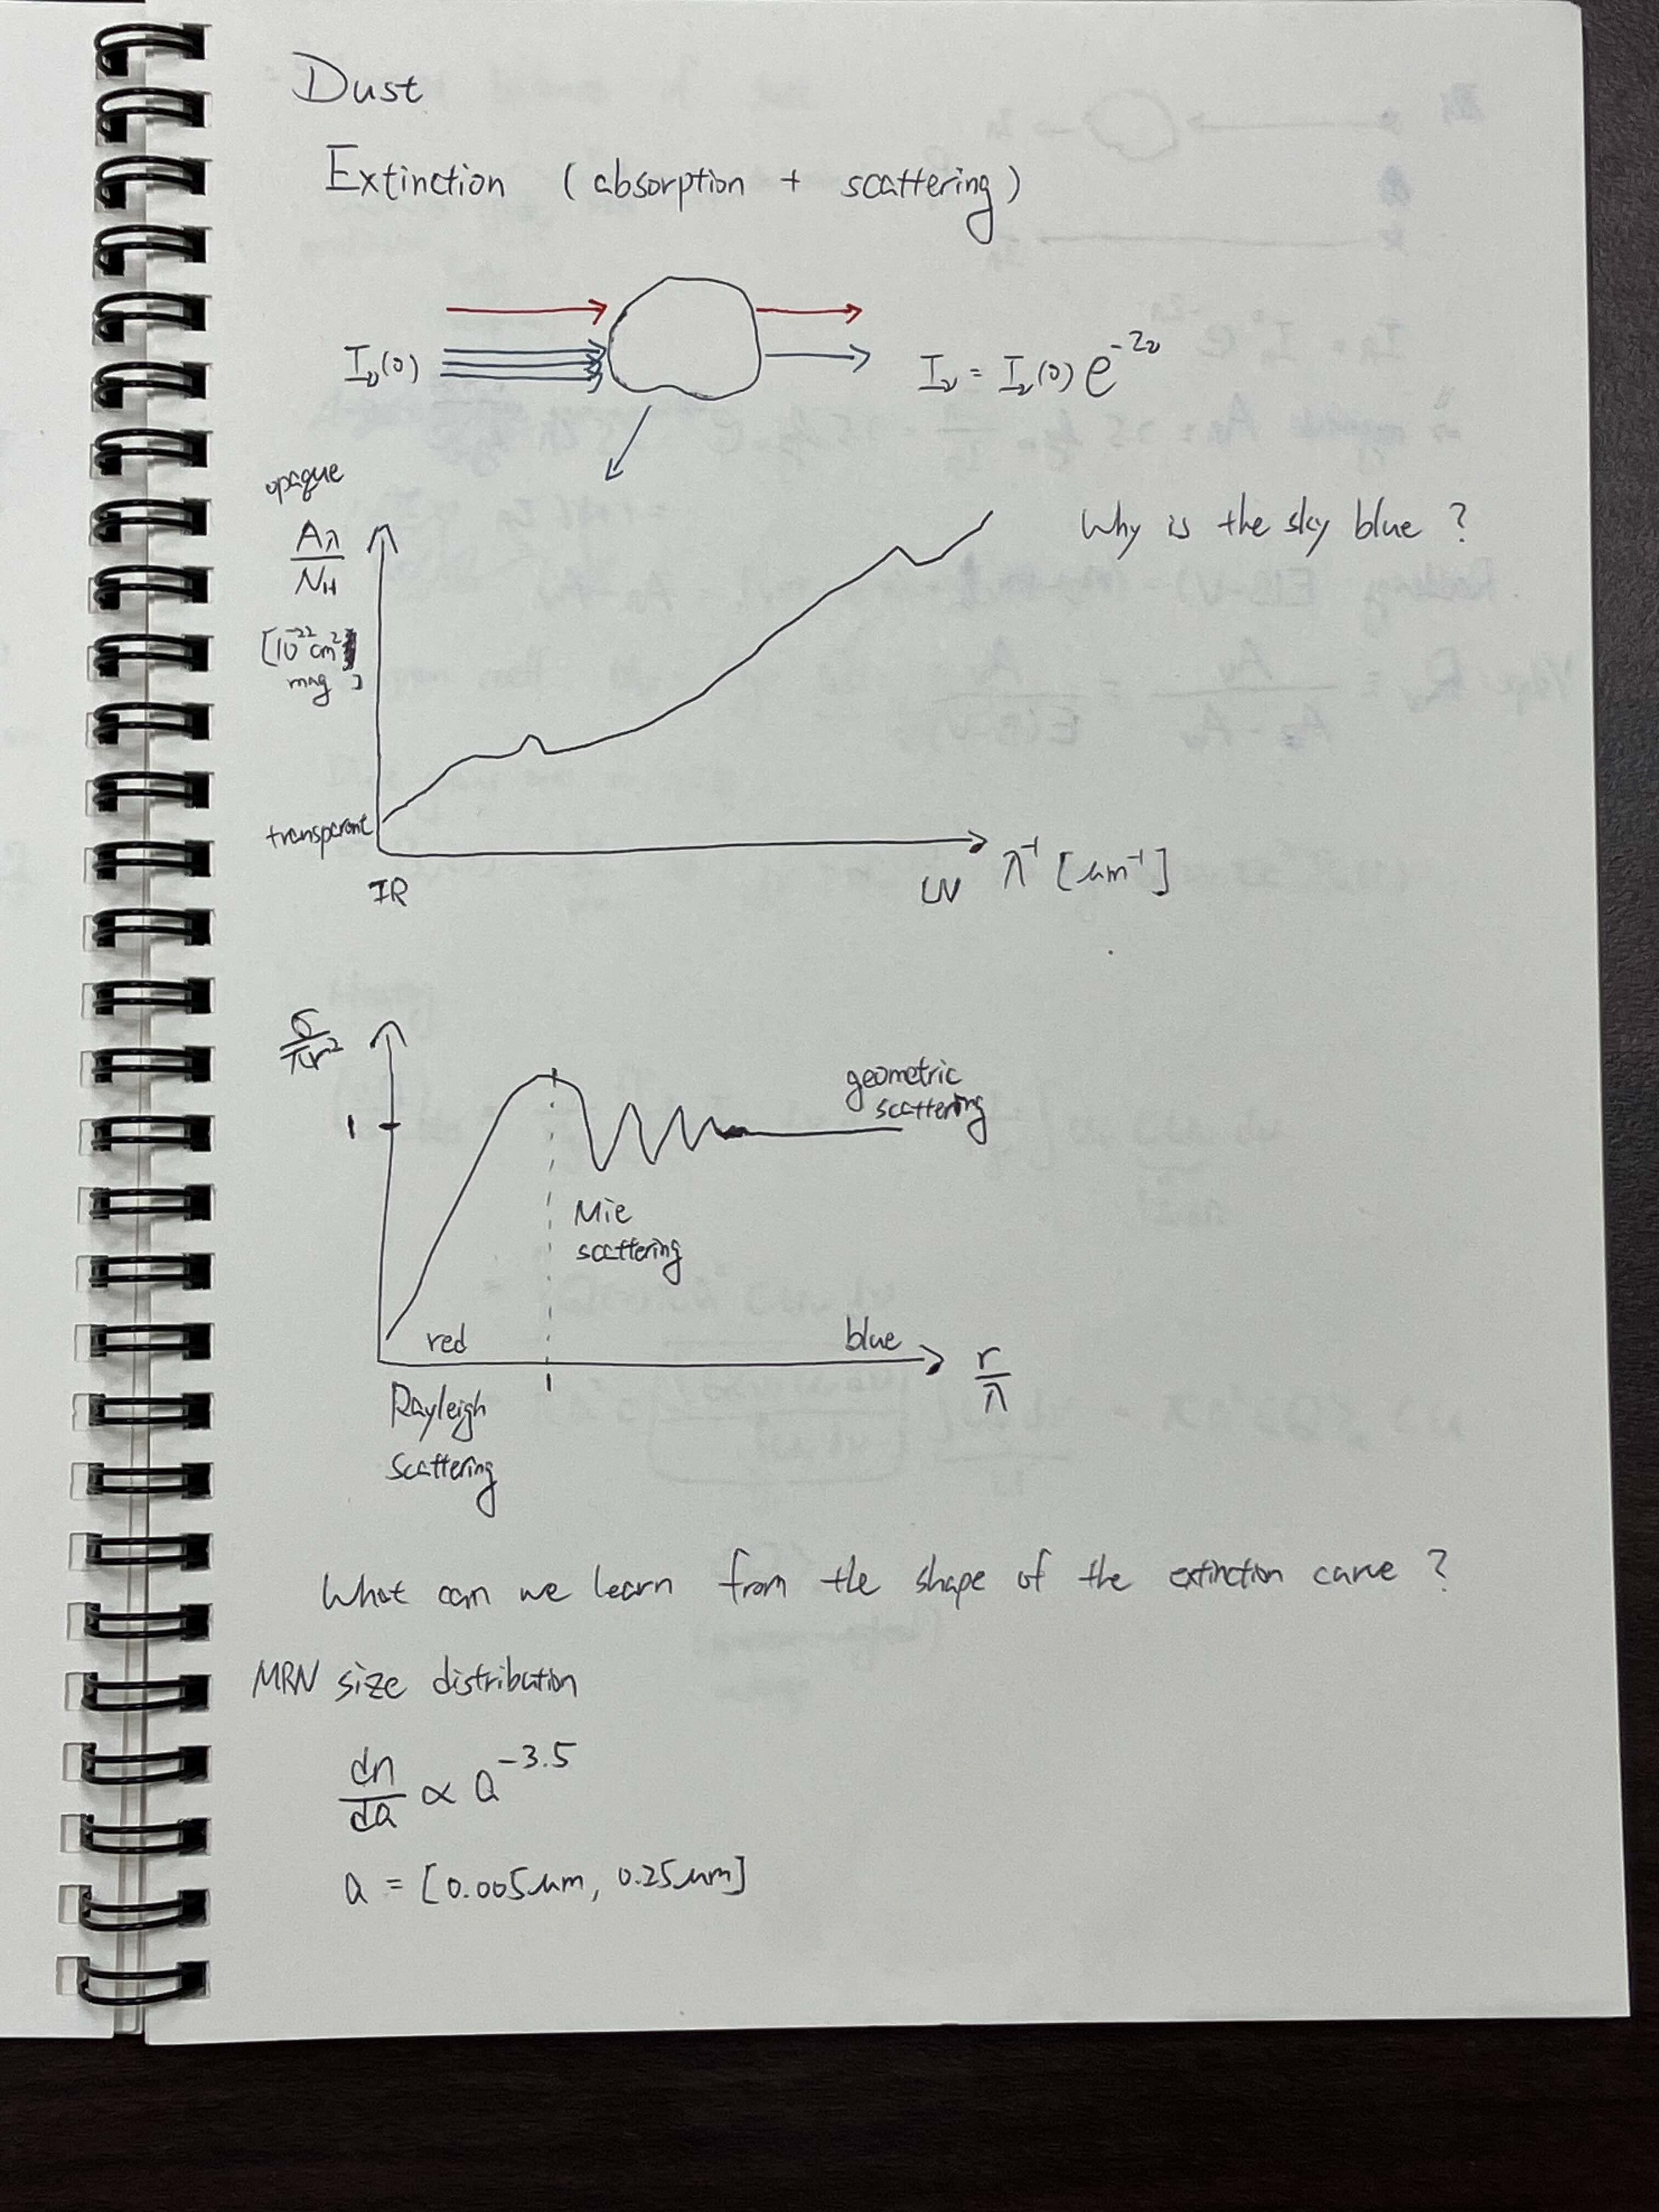 Dust
Extinction (absorption + scattering)
I_ν(0)
I_ν = I_ν(0) e^{-τ_ν}
opaque
A_λ / N_H
[10^{-22} cm^2 mag]
transparent
IR
UV
λ^{-1} [μm^{-1}]
Why is the sky blue ?
σ / πr^2
1
geometric scattering
Mie scattering
red
blue
1
r / λ
Rayleigh scattering
What can we learn from the shape of the extinction curve ?
MRN size distribution
dn/da ∝ a^{-3.5}
a = [0.005μm, 0.25μm]